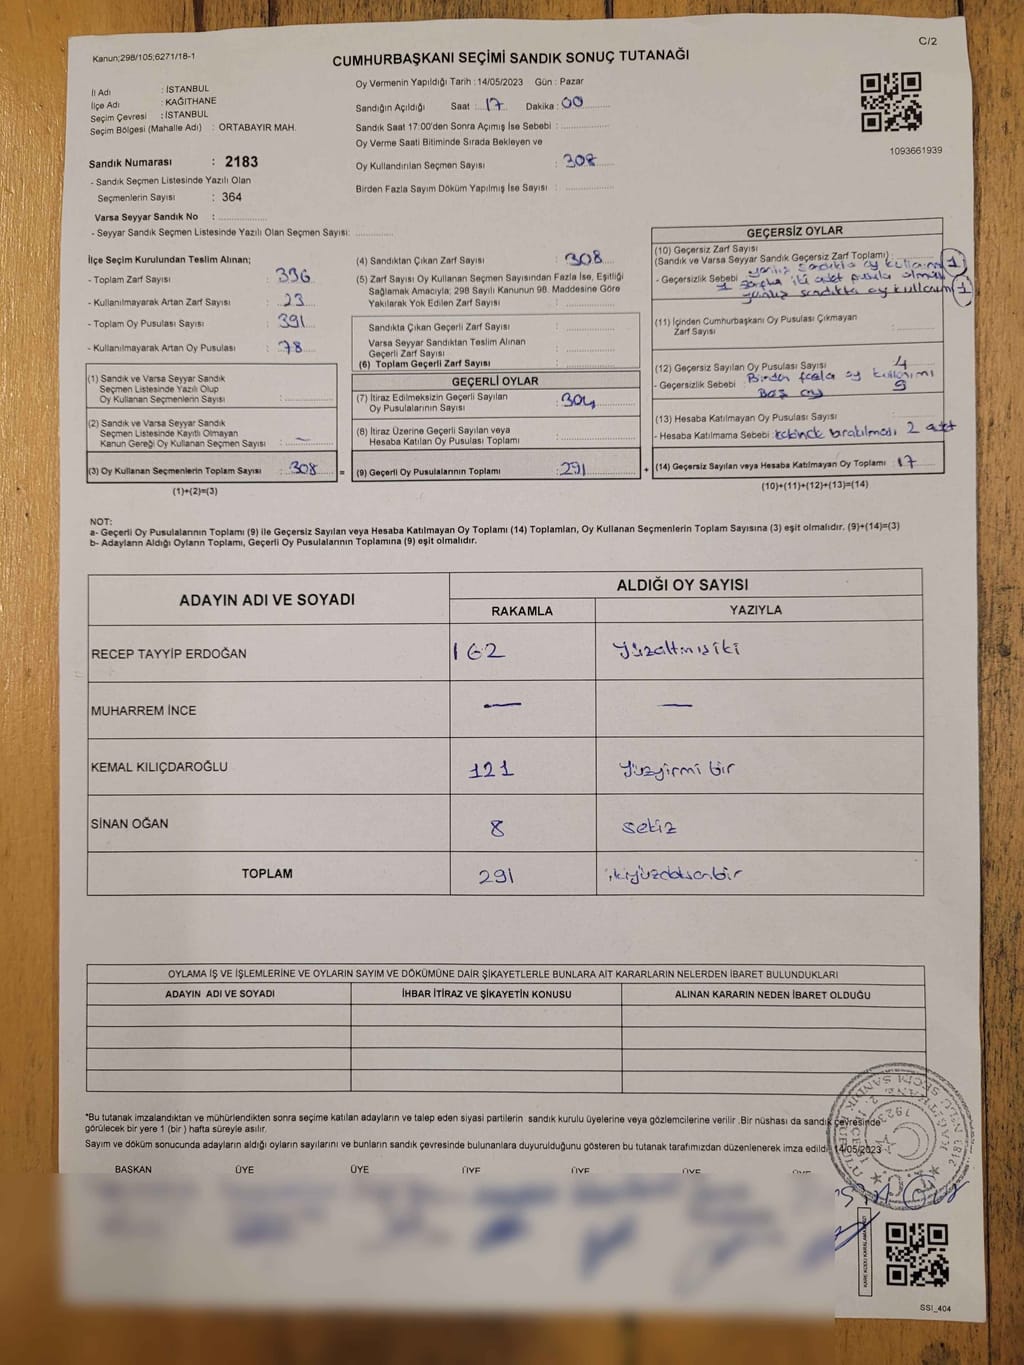 Kanun;298/105;6271/18-1
C/2
CUMHURBAŞKANI SEÇİMİ SANDIK SONUÇ TUTANAĞI
İl Adı : İSTANBUL
İlçe Adı : KAĞITHANE
Seçim Çevresi : İSTANBUL
Seçim Bölgesi (Mahalle Adı) : ORTABAYIR MAH.
Sandık Numarası : 2183
- Sandık Seçmen Listesinde Yazılı Olan
Seçmenlerin Sayısı : 364
Varsa Seyyar Sandık No :
- Seyyar Sandık Seçmen Listesinde Yazılı Olan Seçmen Sayısı:
Oy Vermenin Yapıldığı Tarih : 14/05/2023 Gün : Pazar
Sandığın Açıldığı Saat : 17 Dakika : 00
Sandık Saat 17:00'den Sonra Açımış İse Sebebi :
Oy Verme Saati Bitiminde Sırada Bekleyen ve
Oy Kullandırılan Seçmen Sayısı : 308
Birden Fazla Sayım Döküm Yapılmış İse Sayısı :
1093661939
İlçe Seçim Kurulundan Teslim Alınan;
- Toplam Zarf Sayısı : 336
- Kullanılmayarak Artan Zarf Sayısı : 23
- Toplam Oy Pusulası Sayısı : 391
- Kullanılmayarak Artan Oy Pusulası : 78
(1) Sandık ve Varsa Seyyar Sandık
Seçmen Listesinde Yazılı Olup
Oy Kullanan Seçmenlerin Sayısı :
(2) Sandık ve Varsa Seyyar Sandık
Seçmen Listesinde Kayıtlı Olmayan
Kanun Gereği Oy Kullanan Seçmen Sayısı : —
(3) Oy Kullanan Seçmenlerin Toplam Sayısı : 308 =
(1)+(2)=(3)
(4) Sandıktan Çıkan Zarf Sayısı : 308
(5) Zarf Sayısı Oy Kullanan Seçmen Sayısından Fazla İse, Eşitliği
Sağlamak Amacıyla; 298 Sayılı Kanunun 98. Maddesine Göre
Yakılarak Yok Edilen Zarf Sayısı :
Sandıkta Çıkan Geçerli Zarf Sayısı :
Varsa Seyyar Sandıktan Teslim Alınan
Geçerli Zarf Sayısı :
(6) Toplam Geçerli Zarf Sayısı
GEÇERLİ OYLAR
(7) İtiraz Edilmeksizin Geçerli Sayılan
Oy Pusulalarının Sayısı : 304
(8) İtiraz Üzerine Geçerli Sayılan veya
Hesaba Katılan Oy Pusulası Toplamı :
(9) Geçerli Oy Pusulalarının Toplamı : 291 +
GEÇERSİZ OYLAR
(10) Geçersiz Zarf Sayısı
(Sandık ve Varsa Seyyar Sandık Geçersiz Zarf Toplamı) :
- Geçersizlik Sebebi : yanlış sandıkta oy kullanım 1
1 zarfta iki adet pusula olması
yanlış sandıkta oy kullanım 1
(11) İçinden Cumhurbaşkanı Oy Pusulası Çıkmayan
Zarf Sayısı :
(12) Geçersiz Sayılan Oy Pusulası Sayısı : 4
- Geçersizlik Sebebi : Birden fazla oy kullanımı
Boş oy 9
(13) Hesaba Katılmayan Oy Pusulası Sayısı :
- Hesaba Katılmama Sebebi : bırakılması 2 adet
(14) Geçersiz Sayılan veya Hesaba Katılmayan Oy Toplamı : 17
(10)+(11)+(12)+(13)=(14)
NOT:
a- Geçerli Oy Pusulalarının Toplamı (9) ile Geçersiz Sayılan veya Hesaba Katılmayan Oy Toplamı (14) Toplamları, Oy Kullanan Seçmenlerin Toplam Sayısına (3) eşit olmalıdır. (9)+(14)=(3)
b- Adayların Aldığı Oyların Toplamı, Geçerli Oy Pusulalarının Toplamına (9) eşit olmalıdır.
ADAYIN ADI VE SOYADI
ALDIĞI OY SAYISI
RAKAMLA YAZIYLA
RECEP TAYYİP ERDOĞAN 162 Yüzaltmışiki
MUHARREM İNCE — —
KEMAL KILIÇDAROĞLU 121 Yüzyirmi bir
SİNAN OĞAN 8 sekiz
TOPLAM 291 ikiyüzdoksanbir
OYLAMA İŞ VE İŞLEMLERİNE VE OYLARIN SAYIM VE DÖKÜMÜNE DAİR ŞİKAYETLERLE BUNLARA AİT KARARLARIN NELERDEN İBARET BULUNDUKLARI
ADAYIN ADI VE SOYADI İHBAR İTİRAZ VE ŞİKAYETİN KONUSU ALINAN KARARIN NEDEN İBARET OLDUĞU
*Bu tutanak imzalandıktan ve mühürlendikten sonra seçime katılan adayların ve talep eden siyasi partilerin sandık kurulu üyelerine veya gözlemcilerine verilir. Bir nüshası da sandık çevresinde
görülecek bir yere 1 (bir) hafta süreyle asılır.
Sayım ve döküm sonucunda adayların aldığı oyların sayılarını ve bunların sandık çevresinde bulunanlara duyurulduğunu gösteren bu tutanak tarafımızdan düzenlenerek imza edildi. 14/05/2023
BAŞKAN ÜYE ÜYE ÜYE ÜYE ÜYE ÜYE
KARE KODU KARALAMAYINIZ!
SSI_404